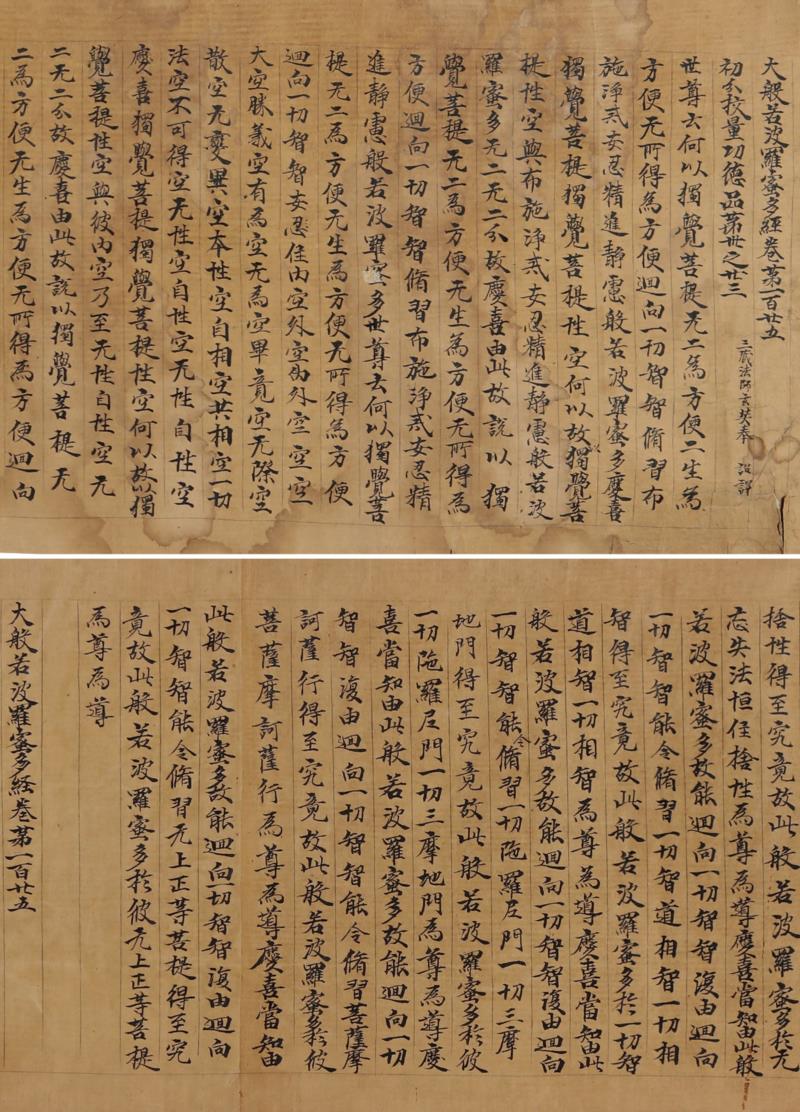 大般若波羅蜜多経巻第一百廿五
初分挍量功徳品第卅之廿三
三蔵法師玄奘奉 詔譯
世尊云何以獨覺菩提无二為方便二生為
方便无所得為方便迴向一切智智脩習布
施淨戒安忍精進靜慮般若波羅蜜多慶喜
獨覺菩提獨覺菩提性空何以故獨覺菩
提性空與布施淨戒安忍精進靜慮般若波
羅蜜多无二无二分故慶喜由此故說以獨
覺菩提无二為方便无生為方便无所得為
方便迴向一切智智脩習布施淨戒安忍精
進靜慮般若波羅蜜多世尊云何以獨覺菩
提无二為方便无生為方便无所得為方便
迴向一切智智安忍住內空外空內外空空空
大空勝義空有為空无為空畢竟空无際空
散空无變異空本性空自相空共相空一切
法空不可得空无性空自性空无性自性空
慶喜獨覺菩提獨覺菩提性空何以故以獨
覺菩提性空與彼內空乃至无性自性空无
二无二分故慶喜由此故說以獨覺菩提无
二為方便无生為方便无所得為方便迴向
捨性得至究竟故此般若波羅蜜多於无
忘失法恒住捨性為尊為導慶喜當知由此般
若波羅蜜多故能迴向一切智智復由迴向
一切智智能令脩習一切智道相智一切相
智得至究竟故此般若波羅蜜多於一切智
道相智一切相智為尊為導慶喜當知由此
般若波羅蜜多故能迴向一切智智復由迴向
一切智智能令脩習一切陁羅尼門一切三摩
地門得至究竟故此般若波羅蜜多於彼
一切陁羅尼門一切三摩地門為尊為導慶
喜當知由此般若波羅蜜多故能迴向一切
智智復由迴向一切智智能令脩習菩薩摩
訶薩行得至究竟故此般若波羅蜜多於彼
菩薩摩訶薩行為尊為導慶喜當知由
此般若波羅蜜多故能迴向一切智智復由迴向
一切智智能令脩習无上正等菩提得至究
竟故此般若波羅蜜多於彼无上正等菩提
為尊為導
大般若波羅蜜多経巻第一百廿五